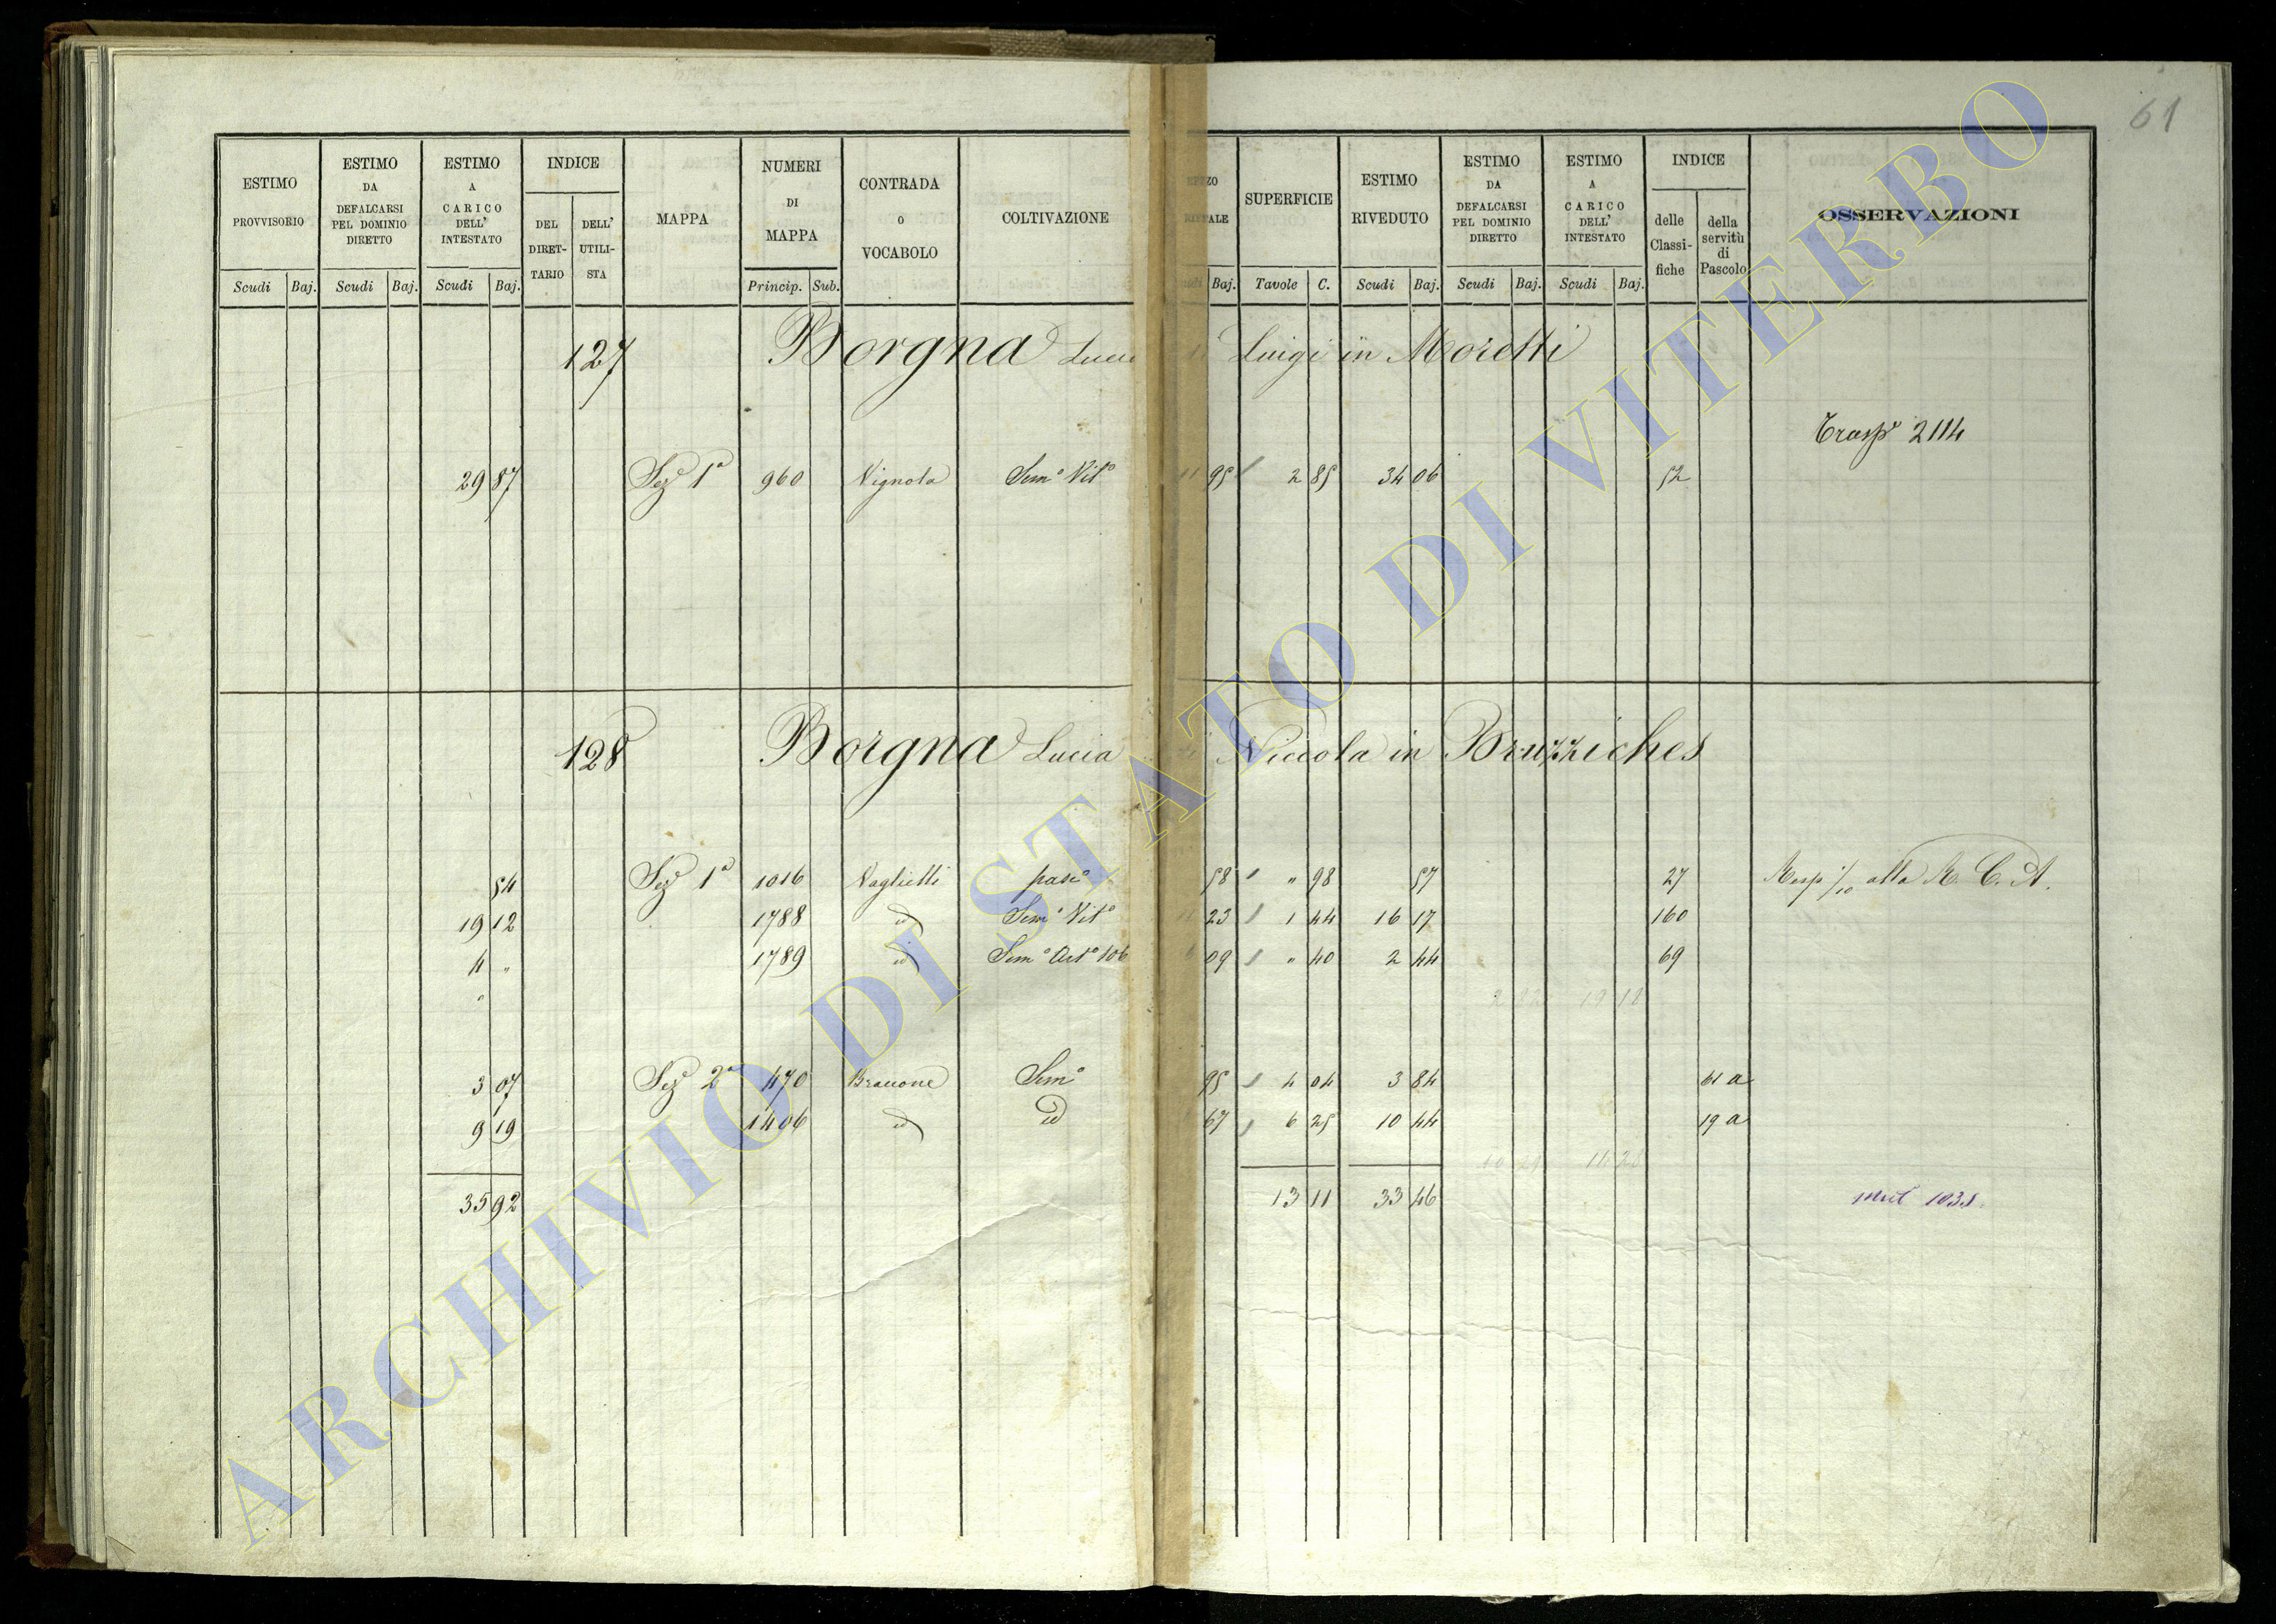 61
ESTIMO PROVVISORIO
ESTIMO DA DEFALCARSI PEL DOMINIO DIRETTO
ESTIMO A CARICO DELL' INTESTATO
INDICE
DEL DIRET-TARIO
DELL' UTILI-STA
MAPPA
NUMERI DI MAPPA
CONTRADA o VOCABOLO
COLTIVAZIONE
SUPERFICIE
ESTIMO RIVEDUTO
ESTIMO DA DEFALCARSI PEL DOMINIO DIRETTO
ESTIMO A CARICO DELL' INTESTATO
INDICE
delle Classi-fiche
della servitù di Pascolo
OSSERVAZIONI
Scudi Baj. Scudi Baj. Scudi Baj. Princip. Sub. Baj. Tavole C. Scudi Baj. Scudi Baj. Scudi Baj.
127 Borgna Luigi in Moretti
Trasp° 2114
29 87 Sez 1ª 960 Vignola Sem° Vit° 95 2 85 34 06 52
128 Borgna Lucia Niccola in Bruzziches
54 Sez 1ª 1016 Vaglietti pasc° 58 " 98 57 27 Resp 1/10 alla R. C. A.
19 12 1788 id Sem° Vit° 23 1 44 16 17 160
4 " 1789 id Sem° Art° 106 09 " 40 2 44 69
"
3 07 Sez 2ª 470 Braccone Sem° 95 4 04 3 84 61 a
9 19 1406 id id 67 6 25 10 44 19 a
35 92 13 11 33 46
ARCHIVIO DI STATO DI VITERBO